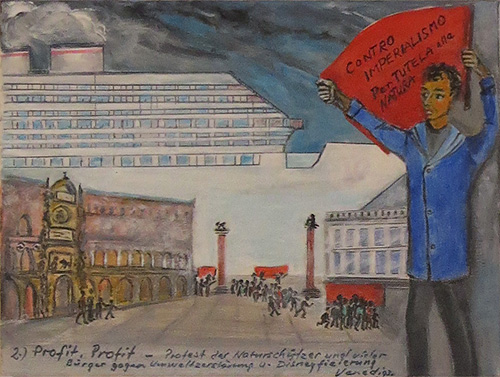 CONTRO
IMPERIALISMO
Per TUTELA alla
NATURA
2.) Profit, Profit – Protest der Naturschützer und vieler
Bürger gegen Umweltzerstörung u. Disneyfizierung
Venedigs.